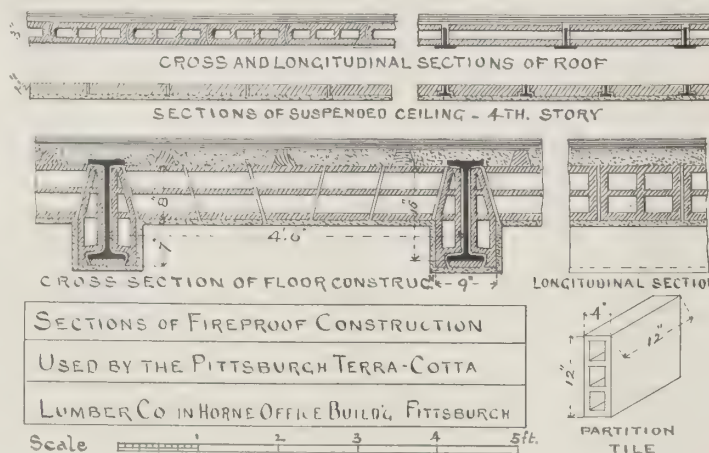 3"
CROSS AND LONGITUDINAL SECTIONS OF ROOF
SECTIONS OF SUSPENDED CEILING - 4TH. STORY
8"
7"
4'.6"
9"
CROSS SECTION OF FLOOR CONSTRUC
LONGITUDINAL SECTION
SECTIONS OF FIREPROOF CONSTRUCTION
USED BY THE PITTSBURGH TERRA-COTTA
LUMBER CO IN HORNE OFFICE BUILD'G PITTSBURGH
Scale 1 2 3 4 5ft.
4"
12"
12"
PARTITION
TILE